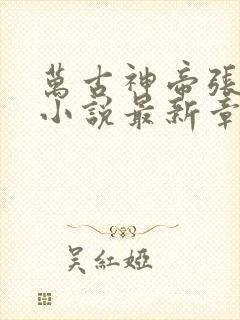 萬古神帝張
小說最新章
吳紅婭